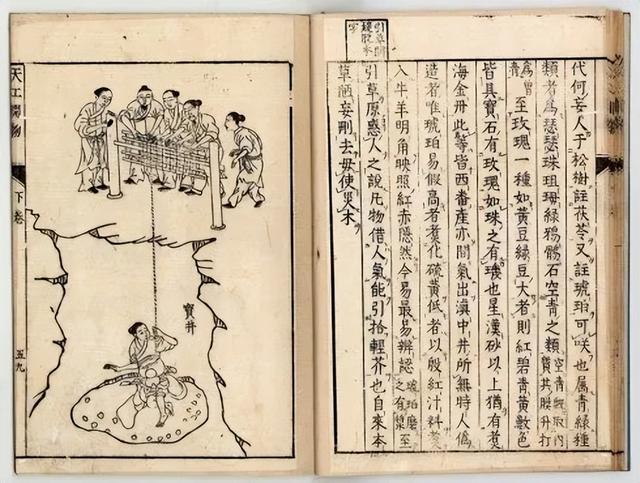 引草
疑脫本
字
代何妄人于松樹註茯苓又註琥珀可笑也属青綠種
類者爲瑟瑟珠珇珻綠鴉鶻石空青之類空青既取内質其膜升打
爲曾青至玫瑰一種如黃豆綠豆大者則紅碧青黃數色
皆具寶石有玫瑰如珠之有璣也星漢砂以上猶有煮
海金丹此等皆西番產亦間氣出滇中井所無時人僞
造者唯琥珀易假高者煮化硫黃低者以殷紅汁料煮
入牛羊明角映照紅赤隱然今易最易辨認琥珀磨之有漿至
引草原惑人之說凡物借人氣能引拾輕芥也自來本
草陋妄刪去毋使災木
寶井
天工開物
下卷
五九